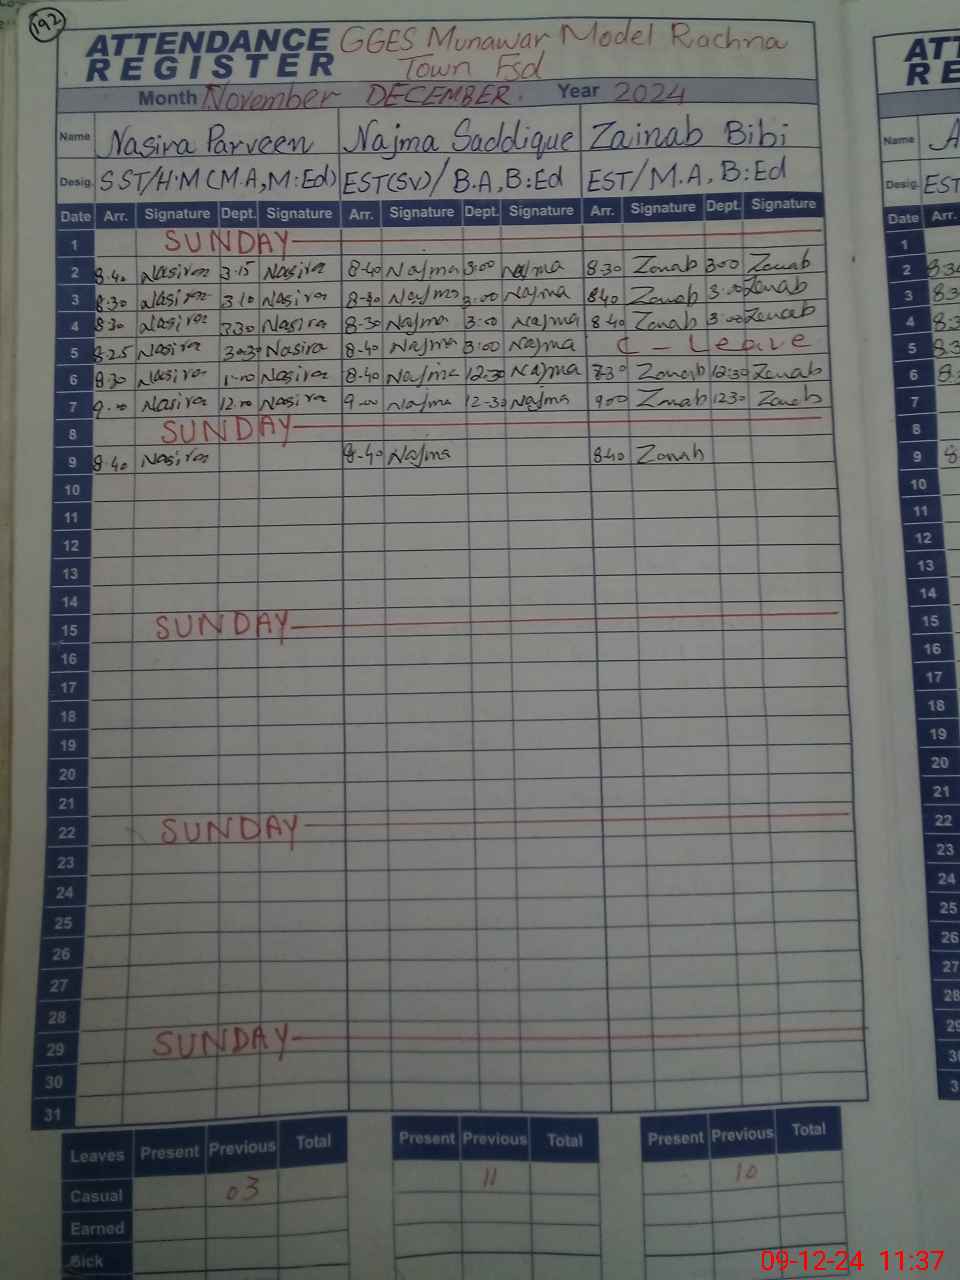 192
ATTENDANCE REGISTER GGES Munawar Model Rachna Town Fsd
Month November DECEMBER. Year 2024
Name Nasira Parveen Najma Saddique Zainab Bibi
Desig. SST/H.M (M.A, M:Ed) EST(SV)/B.A, B:Ed EST/M.A, B:Ed
Date Arr. Signature Dept. Signature Arr. Signature Dept. Signature Arr. Signature Dept. Signature
1 SUNDAY
2 8.40 Nasira 3.15 Nasira 8-40 Najma 3:00 Najma 8.30 Zanab 3:00 Zanab
3 8.30 Nasira 3.10 Nasira 8-40 Najma 3:00 Najma 840 Zanab 3:00 Zanab
4 8.30 Nasira 3.30 Nasira 8-30 Najma 3:00 Najma 8 40 Zanab 3:00 Zanab
5 8.25 Nasira Nasira 8-40 Najma 3:00 Najma C - Leave
6 8.30 Nasira 1.00 Nasira 8-40 Najma 12.30 Najma Zanab 12:30 Zanab
7 9.00 Nasira 12.00 Nasira 9.00 Najma 12-30 Najma 900 Zanab 1230 Zanab
8 SUNDAY
9 8.40 Nasira 8-40 Najma 840 Zanab
10
11
12
13
14
15 SUNDAY
16
17
18
19
20
21
22 SUNDAY
23
24
25
26
27
28
29 SUNDAY
30
31
Leaves Present Previous Total Present Previous Total Present Previous Total
Casual 03 11 10
Earned
Sick
ATT
RE
Name A
Desig. EST
Date Arr.
1
2 8.30
3 8.3
4 8.3
5 8.3
6 8.
7
8
9 8
10
11
12
13
14
15
16
17
18
19
20
21
22
23
24
25
26
27
28
29
30
3
09-12-24 11:37